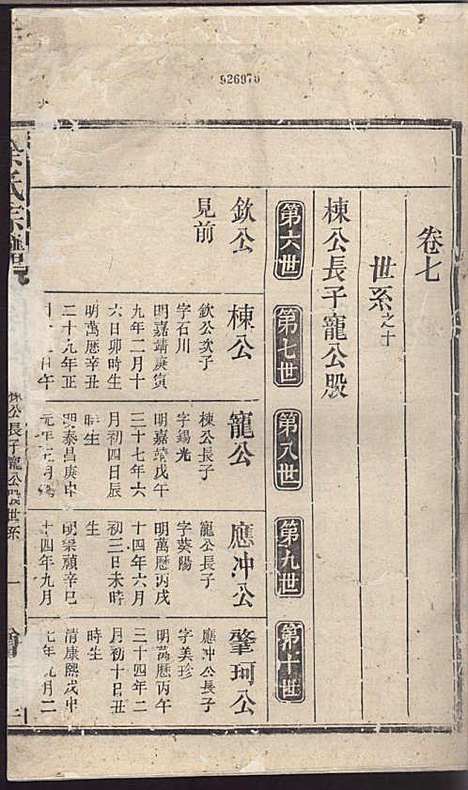 926970
卷七
世系之十
棟公長子寵公股
第六世
第七世
第八世
第九世
第十世
欽公
見前
棟公
欽公次子
字石川
明嘉靖庚寅
九年二月十
六日卯時生
明萬曆辛丑
二十九年正
寵公
棟公長子
字錫光
明嘉靖戊午
三十七年六
月初四日辰
時生
泰昌庚申
應冲公
寵公長子
字葵陽
明萬曆丙戌
十四年六月
初三日未時
生
明崇禎辛巳
十四年九月
肇珂公
應冲公長子
字美珍
明萬曆丙午
三十四年二
月初十日丑
時生
清康熙戌申
七年月二
氏宗譜
棟公長子寵公股世系
一